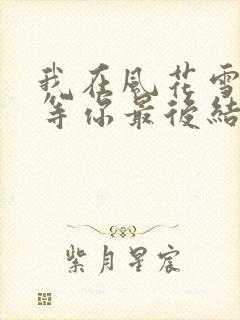 我在風花雪
等你最後結
紫月星宸